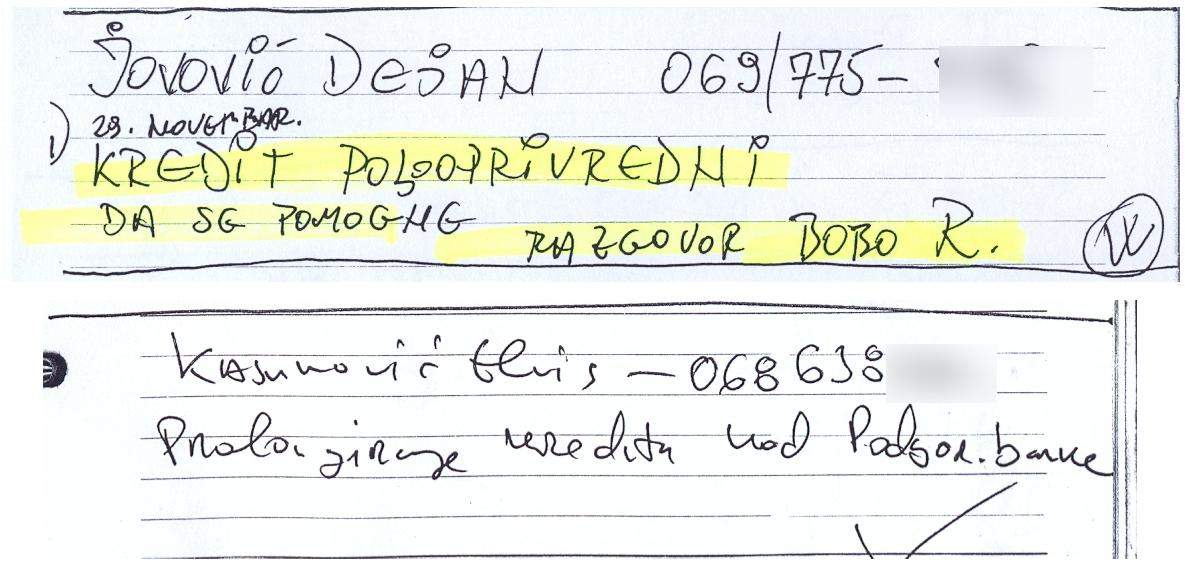 JOVOVIĆ DEJAN 069/775-
1) 29. NOVEMBAR.
KREDIT POLJOPRIVREDNI
DA SE POMOGNE
RAZGOVOR BOBO R.
Kasumović Elvis - 068 638
Prolongiranje kredita kod Podgor. banke